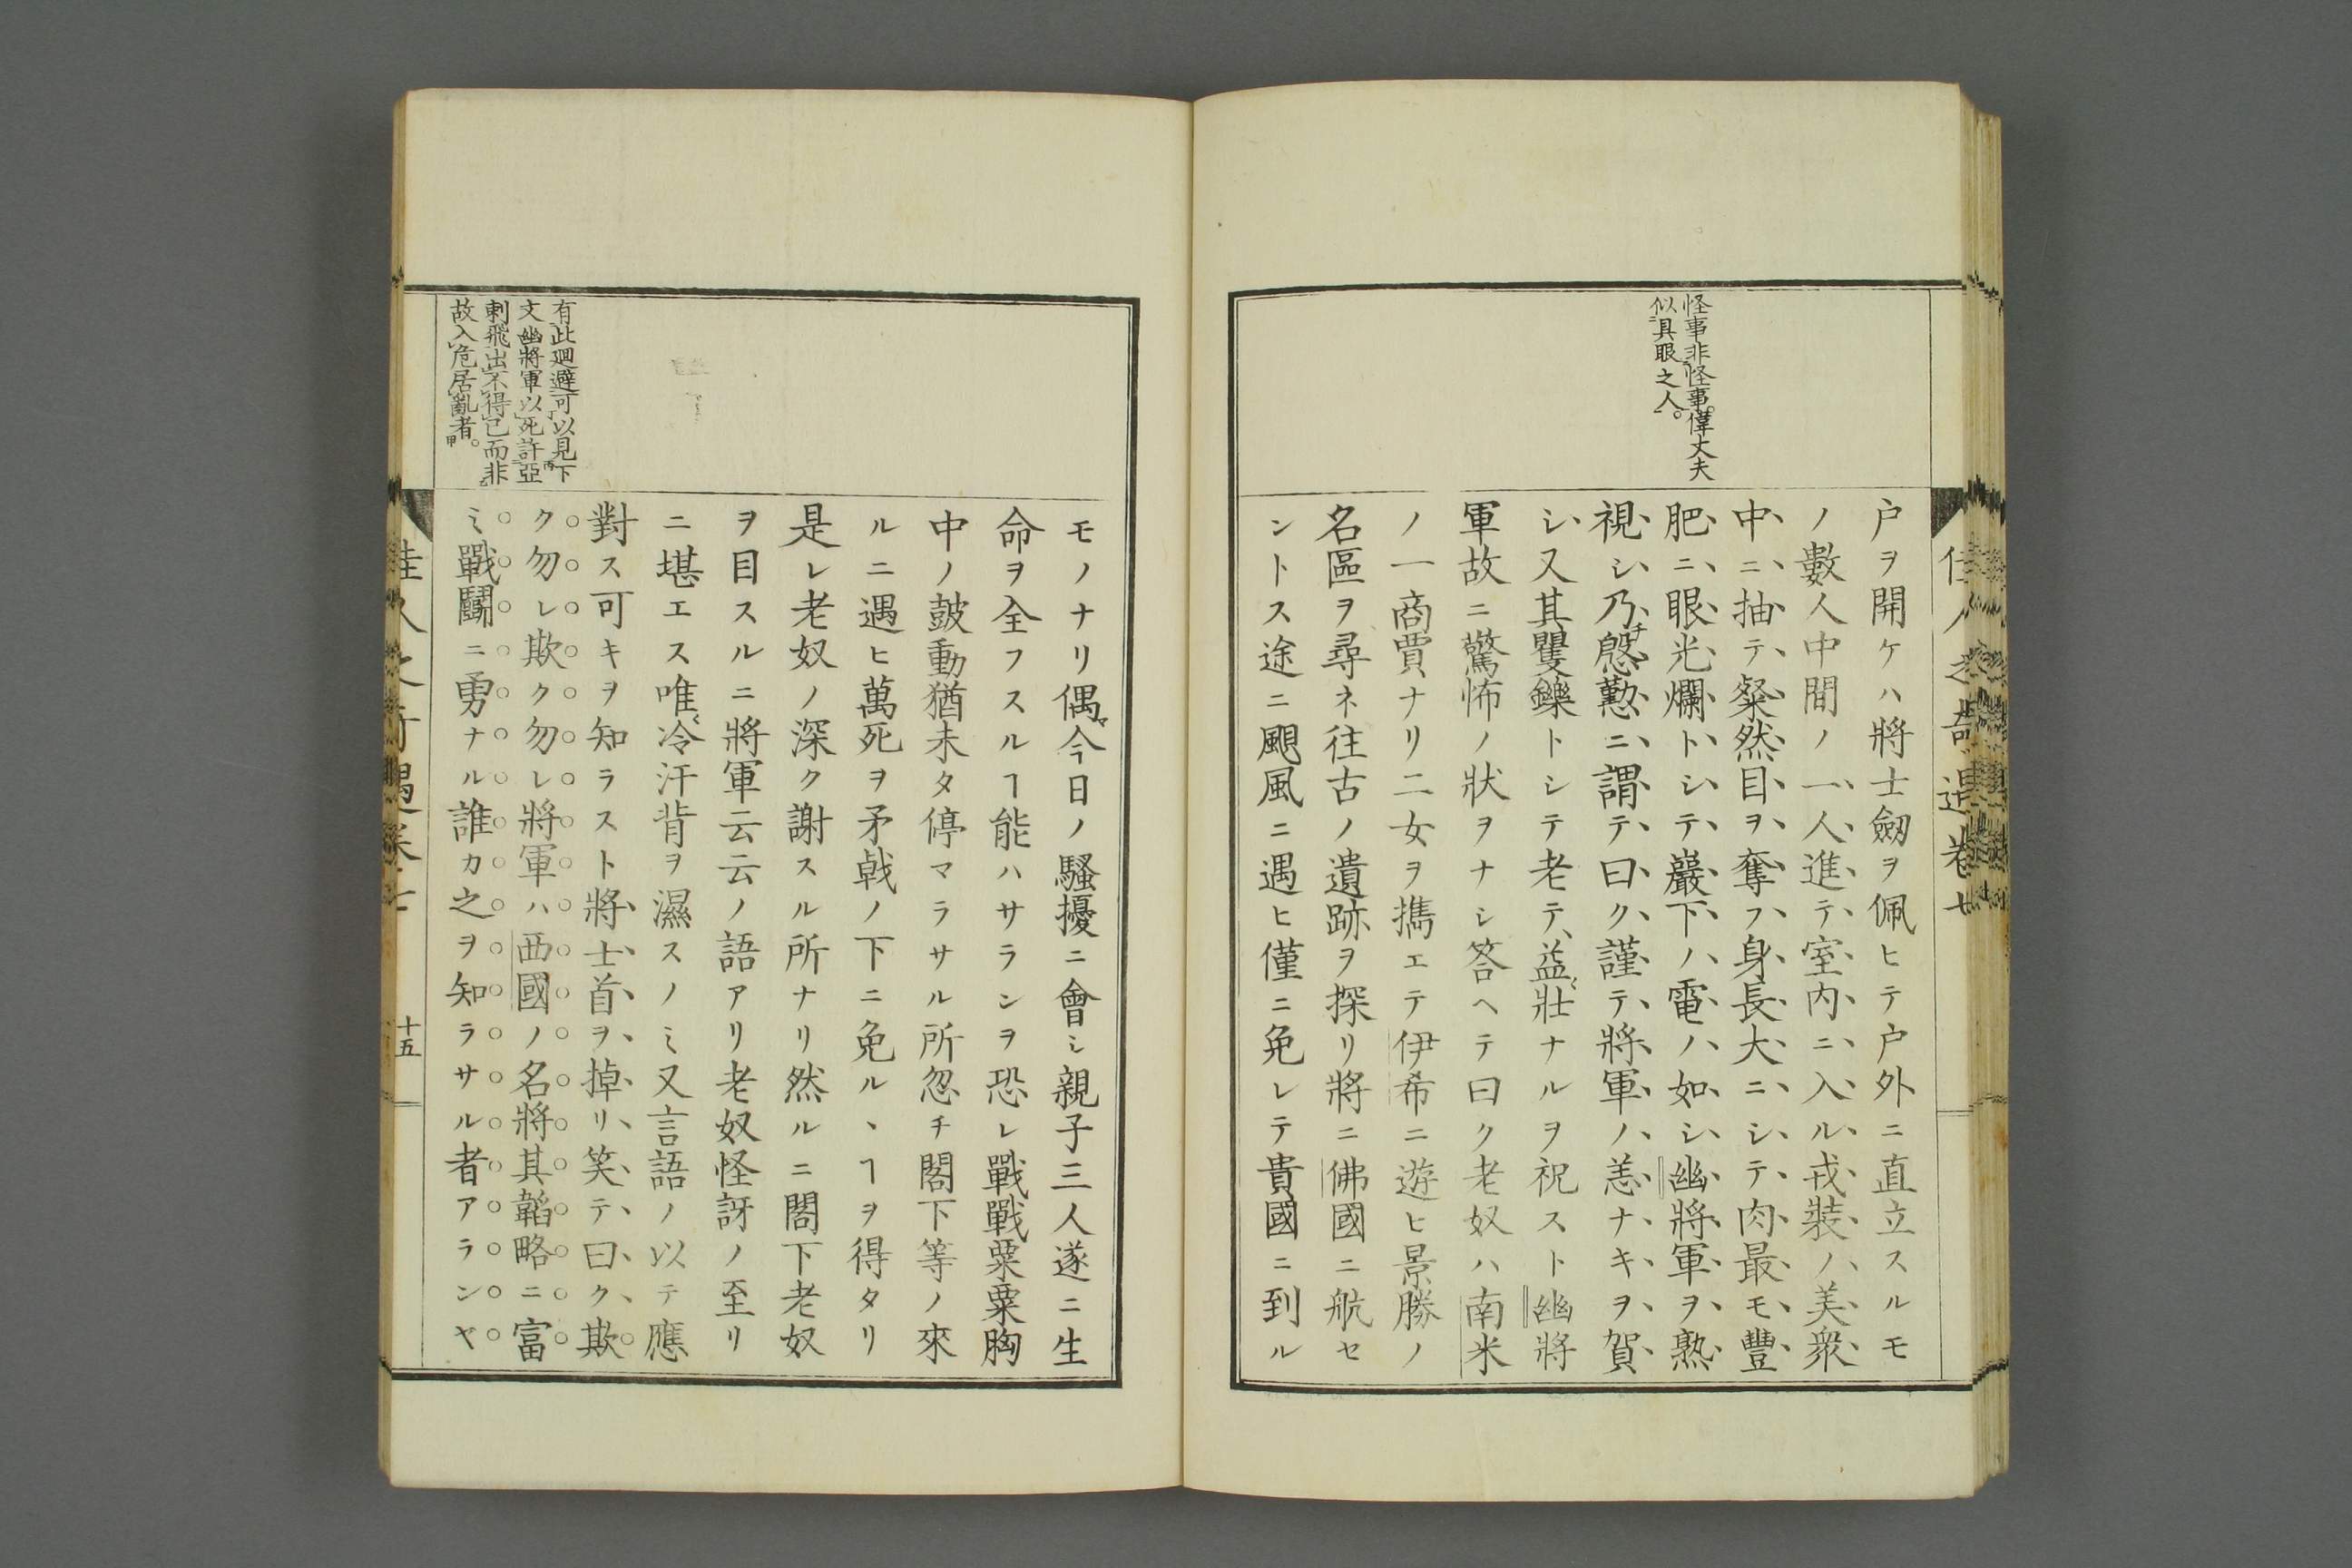 怪事非怪事偉丈夫
似具眼之人。
戸ヲ開ケハ將士劔ヲ佩ヒテ戸外ニ直立スルモ
ノ數人中間ノ一人進テ室内ニ入ル戎裝ノ美衆
中ニ抽テ粲然目ヲ奪フ身長大ニシテ肉最モ豐
肥ニ眼光爛トシテ巖下ノ電ノ如シ幽將軍ヲ熟
視シ乃チ慇懃ニ謂テ曰ク謹テ將軍ノ恙ナキヲ賀
シ又其矍鑠トシテ老テ益〻壯ナルヲ祝スト幽將
軍故ニ驚怖ノ狀ヲナシ答ヘテ曰ク老奴ハ南米
ノ一商賈ナリ二女ヲ携エテ伊希ニ遊ヒ景勝ノ
名區ヲ尋ネ往古ノ遺跡ヲ探リ將ニ佛國ニ航セ
ントス途ニ颶風ニ遇ヒ僅ニ免レテ貴國ニ到ル
佳人之奇遇卷七
有此廻避可以見下
文幽將軍以死許亞
剌飛出不得已而非
故入危居亂者。
モノナリ偶〻今日ノ騷擾ニ會シ親子三人遂ニ生
命ヲ全フスルヿ能ハサランヲ恐レ戰戰粟粟胸
中ノ皷動猶未タ停マラサル所忽チ閣下等ノ來
ルニ遇ヒ萬死ヲ矛戟ノ下ニ免ルヽヿヲ得タリ
是レ老奴ノ深ク謝スル所ナリ然ルニ閣下老奴
ヲ目スルニ將軍云云ノ語アリ老奴怪訝ノ至リ
ニ堪エス唯〻冷汗背ヲ濕スノミ又言語ノ以テ應
對ス可キヲ知ラスト將士首ヲ掉リ笑テ曰ク欺
ク勿レ欺ク勿レ將軍ハ西國ノ名將其韜略ニ富
ミ戰鬪ニ勇ナル誰カ之ヲ知ラサル者アランヤ
佳人之奇遇卷七
十五